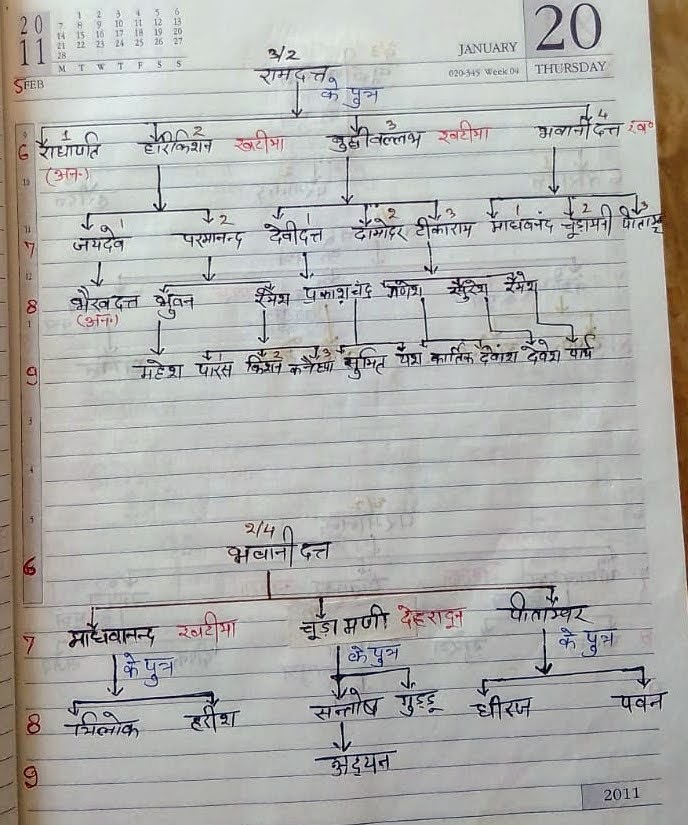 20 11
1 2 3 4 5 6
7 8 9 10 11 12 13
14 15 16 17 18 19 20
21 22 23 24 25 26 27
28
M T W T F S S
FEB
JANUARY 20
020-345 Week 04 THURSDAY
3/2
5 रामदत्त
के पुत्र
1 2 3 4
6 राधापति हरिकिशन खटीमा बुद्धीवल्लभ खटीमा भवानी दत्त ख॰
(अन.)
1 2 1 2 3 1 2 3
7 जयदेव परमानन्द देवीदत्त दामोदर टीकाराम माधवनंद चूड़ामनी
8 भैरवदत्त भुवन रमेश प्रकाशचंद्र गणेश सुरेश रमेश
(अन.)
1 2 3
9 महेश पारस किशन कन्हैया सुमित यश कार्तिक देवांश देवेश पार्थ
2/4
6 भवानी दत्त
7 माधवानन्द खटीमा चूड़ा मणी देहरादून पीताम्बर
के पुत्र के पुत्र के पुत्र
8 त्रिलोक हरीश सन्तोष गुड्डू धीरज पवन
9 अदयन
2011